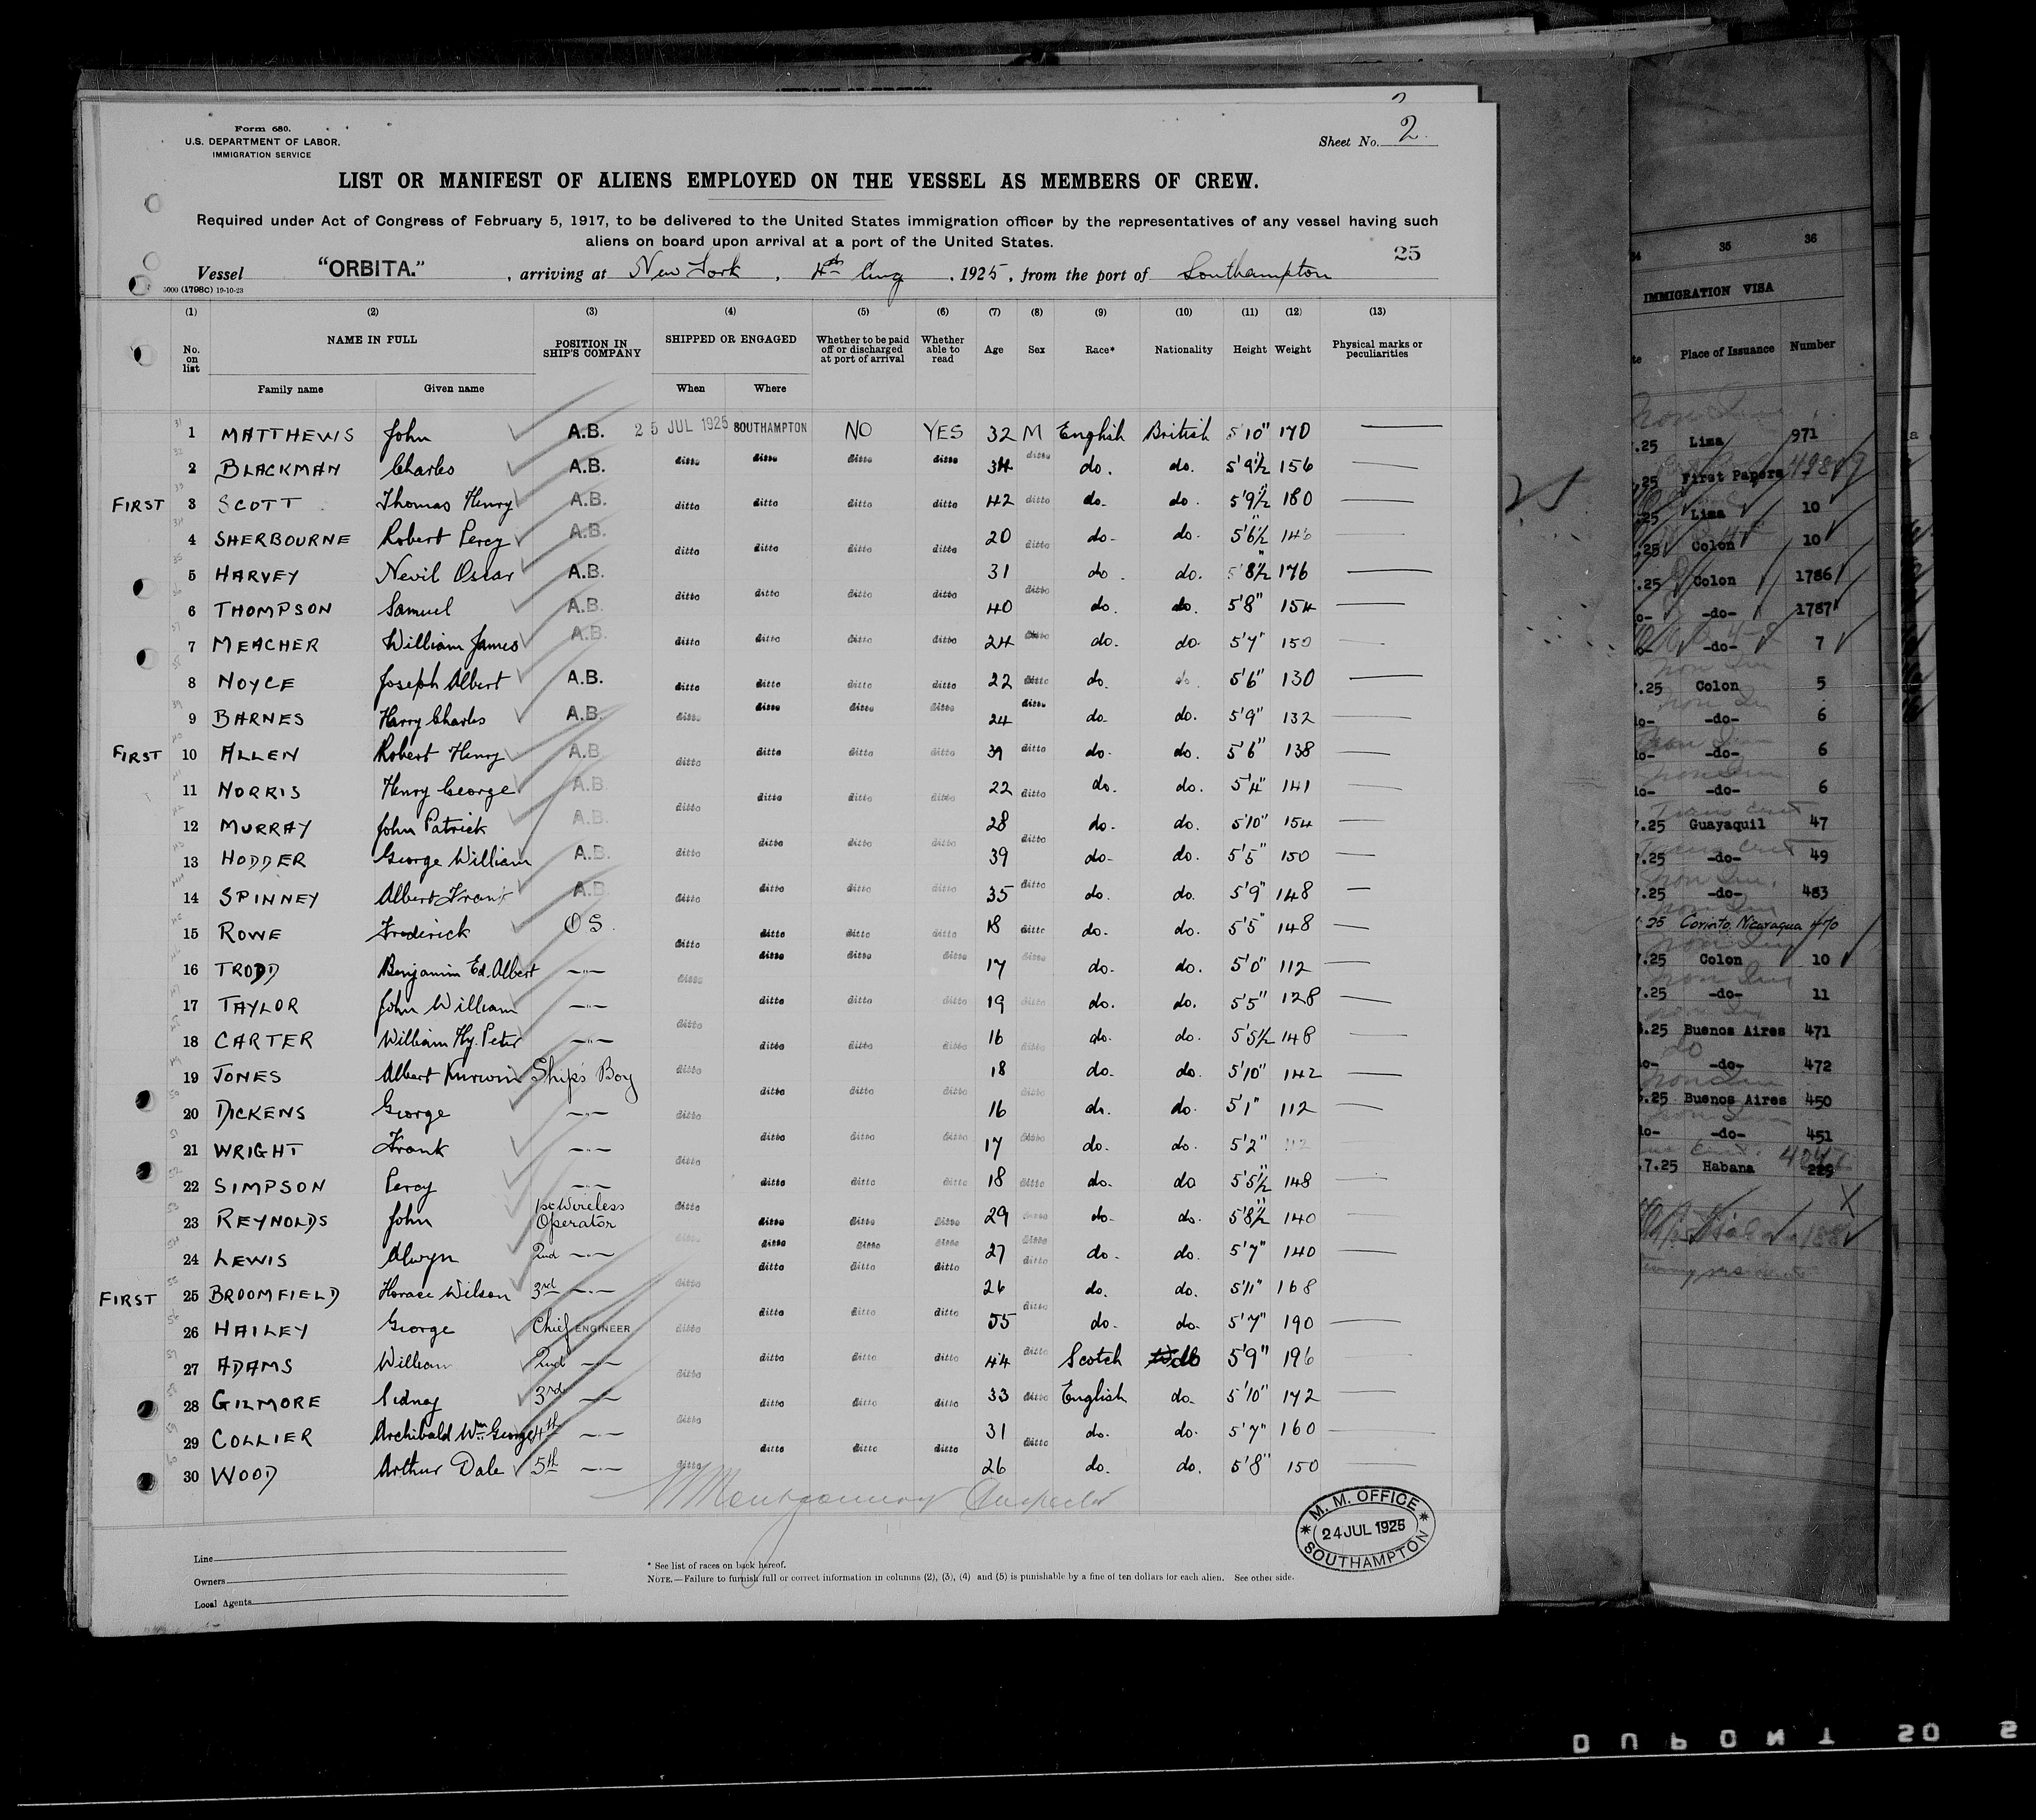 2
Form 680.
U.S. DEPARTMENT OF LABOR.
IMMIGRATION SERVICE
Sheet No. 2
LIST OR MANIFEST OF ALIENS EMPLOYED ON THE VESSEL AS MEMBERS OF CREW.
Required under Act of Congress of February 5, 1917, to be delivered to the United States immigration officer by the representatives of any vessel having such
aliens on board upon arrival at a port of the United States.
25
Vessel "ORBITA." , arriving at New York , 4th Aug , 1925, from the port of Southampton
5000 (1798C) 19-10-23
(1) (2) (3) (4) (5) (6) (7) (8) (9) (10) (11) (12) (13)
No. on list NAME IN FULL POSITION IN SHIP'S COMPANY SHIPPED OR ENGAGED Whether to be paid off or discharged at port of arrival Whether able to read Age Sex Race* Nationality Height Weight Physical marks or peculiarities
Family name Given name When Where
1 MATTHEWS John A.B. 25 JUL 1925 SOUTHAMPTON NO YES 32 M English British 5'10" 170
2 BLACKMAN Charles A.B. ditto ditto ditto ditto 34 ditto do. do. 5'9½" 156
FIRST 3 SCOTT Thomas Henry A.B. ditto ditto ditto ditto 42 ditto do. do. 5'9½" 180
4 SHERBOURNE Robert Percy A.B. ditto ditto ditto ditto 20 ditto do- do. 5'6½" 146
5 HARVEY Nevil Oscar A.B. ditto ditto ditto ditto 31 ditto do. do. 5'8½" 176
6 THOMPSON Samuel A.B. 40 do. do. 5'8" 154
7 MEACHER William James A.B. ditto ditto ditto ditto 24 ditto do. do. 5'7" 150
8 NOYCE Joseph Albert A.B. ditto ditto ditto ditto 22 ditto do. do. 5'6" 130
9 BARNES Harry Charles A.B. ditto ditto ditto ditto 24 ditto do. do. 5'9" 132
FIRST 10 ALLEN Robert Henry A.B. ditto ditto ditto ditto 39 ditto do. do. 5'6" 138
11 NORRIS Henry George A.B. ditto ditto ditto ditto 22 ditto do. do. 5'4" 141
12 MURRAY John Patrick A.B. ditto ditto ditto 28 ditto do. do. 5'10" 154
13 HODDER George William A.B. ditto 39 do- do. 5'5" 150
14 SPINNEY Albert Frank A.B. ditto ditto ditto ditto 35 ditto do. do. 5'9" 148
15 ROWE Frederick O S. ditto ditto ditto ditto 18 ditto do- do. 5'5" 148
16 TRODD Benjamin Ed. Albert —"— ditto ditto ditto ditto 17 ditto do- do. 5'0" 112
17 TAYLOR John William —"— ditto ditto ditto ditto 19 ditto do. do. 5'5" 128
18 CARTER William Hy. Peter —"— ditto ditto ditto 16 ditto do. do. 5'5½ 148
19 JONES Albert Ship's Boy ditto ditto ditto ditto 18 ditto do. do. 5'10" 142
20 DICKENS George —"— ditto 16 do. do. 5'1" 112
21 WRIGHT Frank —"— ditto ditto ditto ditto 17 ditto do. do. 5'2" 112
22 SIMPSON Percy —"— ditto ditto ditto 18 ditto do. do 5'5½" 148
23 REYNOLDS John 1st Wireless Operator ditto ditto ditto ditto 29 ditto do- do. 5'8½" 140
24 LEWIS Alwyn 2nd —"— ditto ditto ditto ditto 27 ditto do. do. 5'7" 140
FIRST 25 BROOMFIELD Horace Wilson 3rd —"— ditto ditto ditto ditto 26 ditto do. do. 5'11" 168
26 HAILEY George Chief ENGINEER ditto ditto ditto ditto 55 ditto do. do. 5'7" 190
27 ADAMS William 2nd —"— ditto ditto ditto ditto 44 ditto Scotch do 5'9" 196
28 GILMORE Sidney 3rd —"— ditto ditto ditto 33 ditto English do. 5'10" 172
29 COLLIER Archibald Wm. George 4th —"— ditto 31 do. do. 5'7" 160
30 WOOD Arthur Dale 5th —"— ditto ditto ditto ditto 26 ditto do. do. 5'8" 150
Montgomery Inspector
M. M. OFFICE
24 JUL 1925
SOUTHAMPTON
Line
Owners
Local Agents
* See list of races on back hereof.
NOTE.—Failure to furnish full or correct information in columns (2), (3), (4) and (5) is punishable by a fine of ten dollars for each alien. See other side.
34 35 36
IMMIGRATION VISA
Place of Issuance Number
.25 Lima 971
.25 First Papers
.25 Lima 10
.25 Colon 10
.25 Colon 1786
o- -do- 1787
-do- 7
.25 Colon 5
do- -do- 6
lo- -do- 6
lo- -do- 6
7.25 Guayaquil 47
7.25 -do- 49
7.25 -do- 483
25 Corinto, Nicaragua 470
7.25 Colon 10
7.25 -do- 11
.25 Buenos Aires 471
do
o- -do- 472
.25 Buenos Aires 450
lo- -do- 451
.7.25 Habana 229
DUPONT 20 S